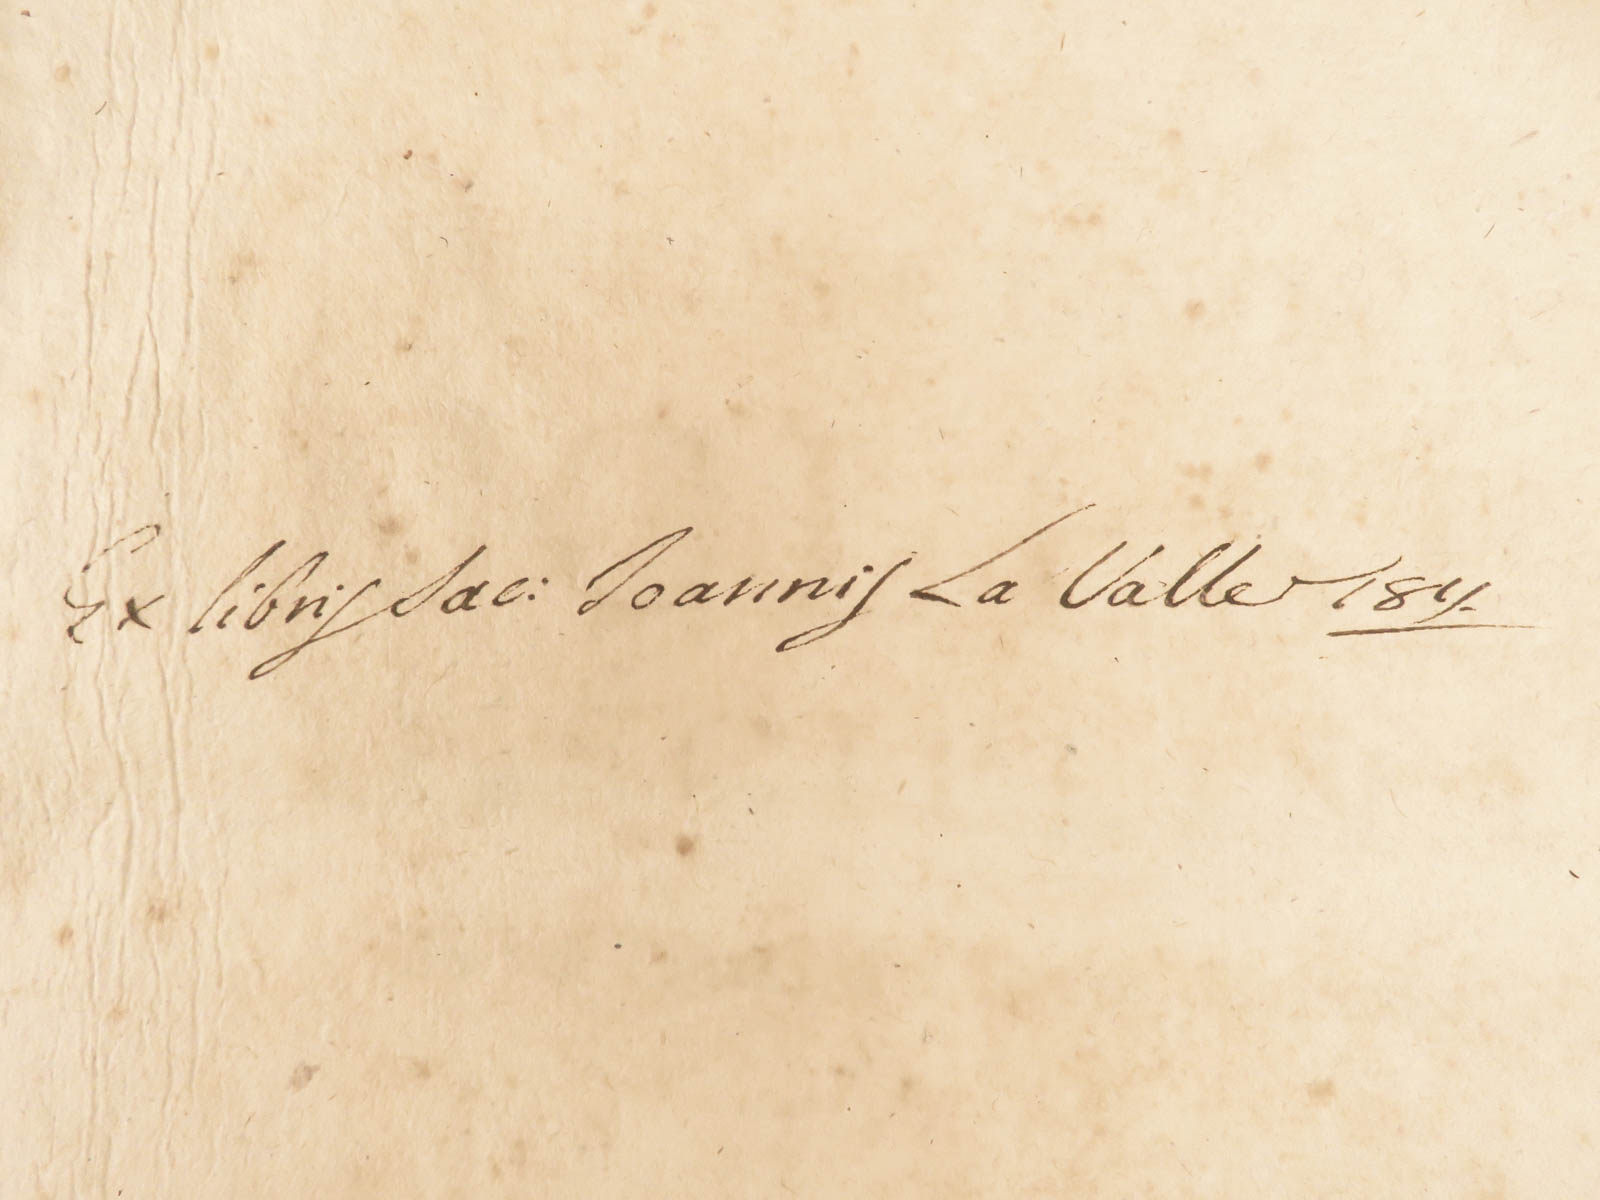 Ex libris Sac: Joannis La Valle